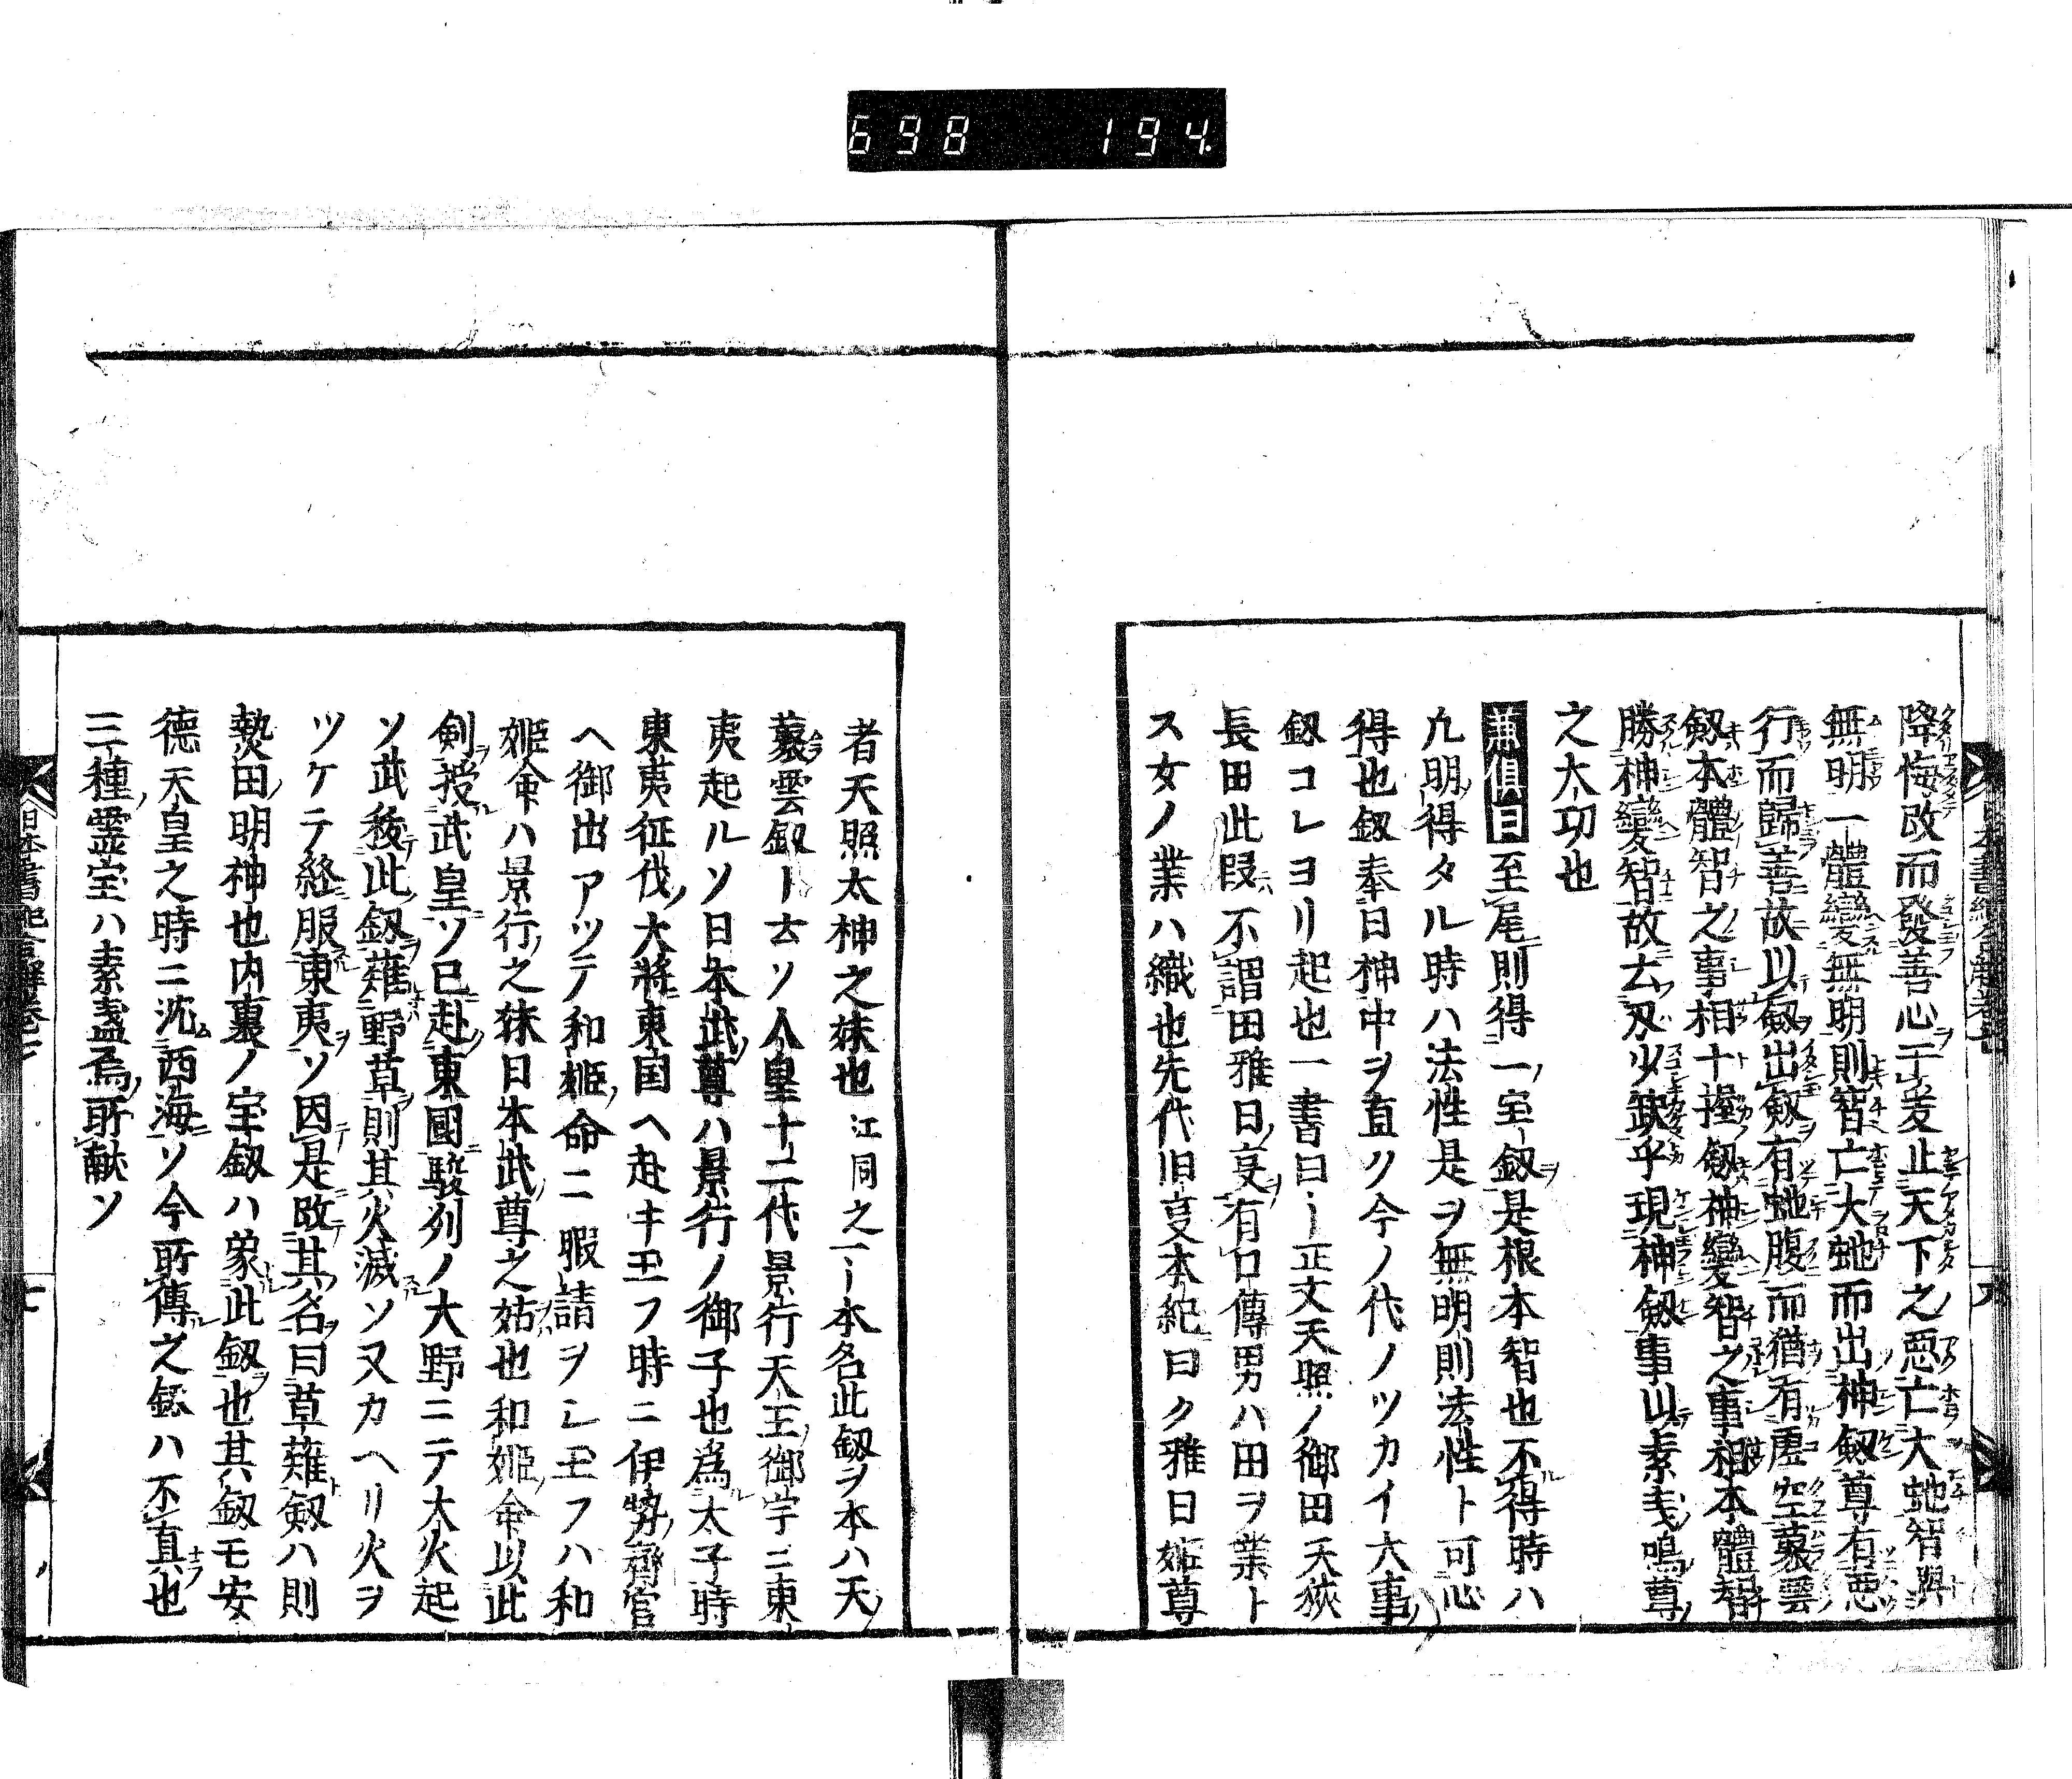 698 194
降悔改而發善心于爰止天下之悪亡大虵智與
無明一體變無明則智亡大虵而出神劔尊有悪
行而歸善故以劔出劔有虵腹而猶有虚空䕺雲
劔本體智之事相十握劔神變智之事相本體智
勝神變智故云刄少缺乎現神劔事以素戔嗚尊
之大功也
兼俱曰至尾則得一宝劔是根本智也不得時ハ
九明得タル時ハ法性是ヲ無明則法性ト可心
得也劔奉日神中ヲ直ク今ノ代ノツカイ大事
劔コレヨリ起也一書曰〻正文天照ノ御田天狹
長田此段不謂田雅日㕝有口傳男ハ田ヲ業ト
ス女ノ業ハ織也先代旧㕝本紀曰ク雅日姫尊
者天照太神之妹也江同之一〻本名此劔ヲ本ハ天
䕺雲劔ト云ソ人皇十二代景行天王御宇ニ東
夷起ルソ日本武尊ハ景行ノ御子也為太子時
東夷征伐大將東国ヘ赴キ玉フ時ニ伊勢齊宮
ヘ御出アツテ和姫命ニ暇請ヲシ玉フハ和
姫命ハ景行之妹日本武尊之姑也和姫命以此
剣授武皇ソ已赴東國駿列ノ大野ニテ大火起
ソ武抜此劔薙野草則其火滅ソ又カヘリ火ヲ
ツケテ終服東夷ソ因是改其名曰草薙劔ハ則
熱田明神也内裏ノ宝劔ハ象此劔也其劔モ安
德天皇之時ニ沈西海ソ今所傳之劔ハ不真也
三種霊宝ハ素盞烏所献ソ